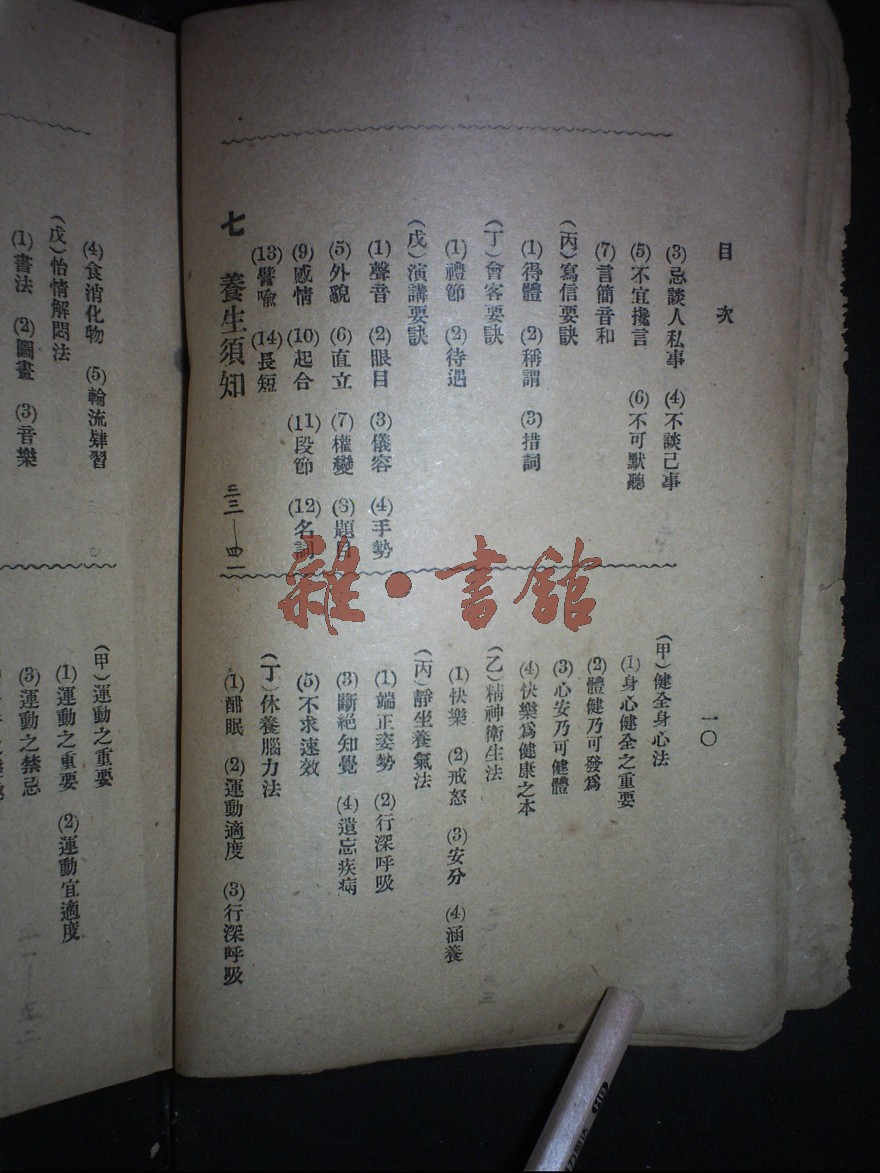 目次
一〇
(3)忌談人私事 (4)不談己事
(5)不宜攙言 (6)不可默聽
(7)言簡音和
(丙)寫信要訣
(1)得體 (2)稱謂 (3)措詞
(丁)會客要訣
(1)禮節 (2)待遇
(戊)演講要訣
(1)聲音 (2)眼目 (3)儀容 (4)手勢
(5)外貌 (6)直立 (7)權變 (8)題目
(9)感情 (10)起合 (11)段節 (12)名詞
(13)譬喻 (14)長短
七 養生須知 二三—四二
(甲)健全身心法
(1)身心健全之重要
(2)體健乃可發爲
(3)心安乃可健體
(4)快樂爲健康之本
(乙)精神衛生法
(1)快樂 (2)戒怒 (3)安分 (4)涵養
(丙)靜坐養氣法
(1)端正姿勢 (2)行深呼吸
(3)斷絕知覺 (4)遺忘疾病
(5)不求速效
(丁)休養腦力法
(1)酣眠 (2)運動適度 (3)行深呼吸
(4)食消化物 (5)輪流肄習
(戊)怡情解悶法
(1)書法 (2)圖畫 (3)音樂
(甲)運動之重要
(1)運動之重要 (2)運動宜適度
(3)運動之禁忌
雜·書舘
HB